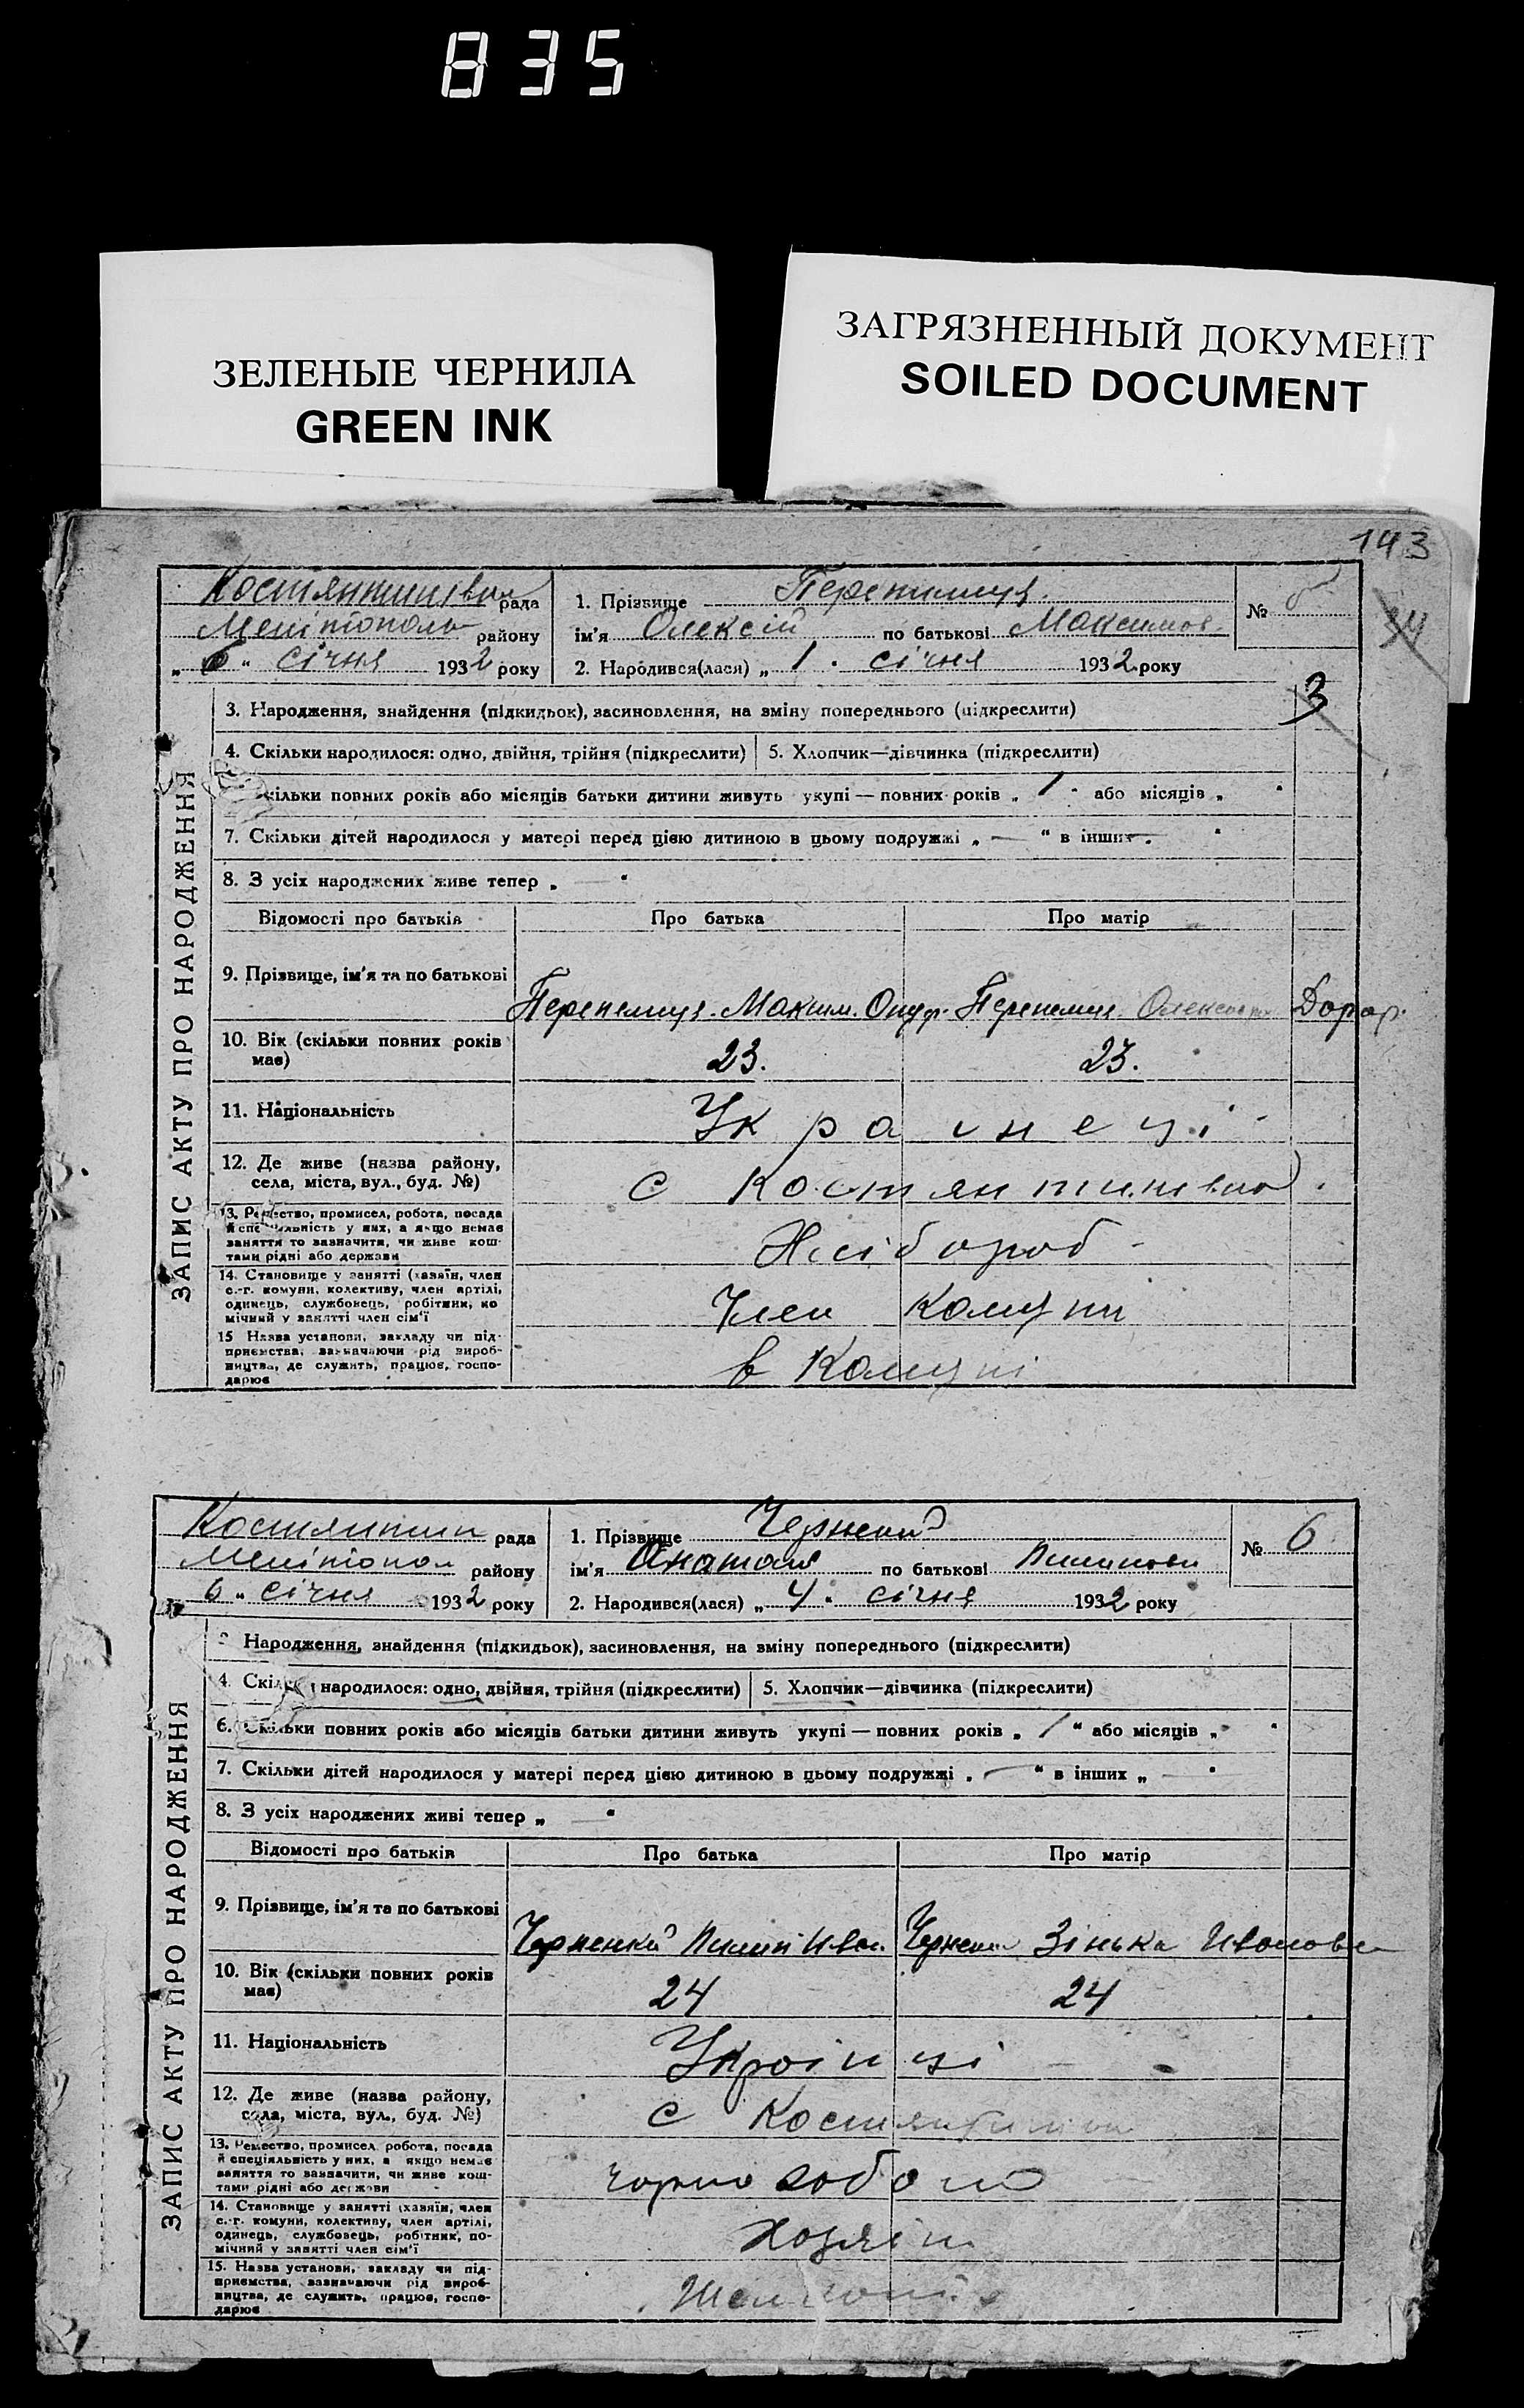 835
ЗЕЛЕНЫЕ ЧЕРНИЛА
GREEN INK
ЗАГРЯЗНЕННЫЙ ДОКУМЕНТ
SOILED DOCUMENT
143
ЗАПИС АКТУ ПРО НАРОДЖЕННЯ
рада
Меліtopоль району
„6" січня 1932 року
1. Прізвище
ім'я Олексій по батькові Максимов.
2. Народився(лася) „1" січня 1932 року
№
3
3. Народження, знайдення (підкидьок), засиновлення, на зміну попереднього (підкреслити)
4. Скільки народилося: одно, двійня, трійня (підкреслити)
5. Хлопчик—дівчинка (підкреслити)
кільки повних років або місяців батьки дитини живуть укупі — повних років „1" або місяців „ "
7. Скільки дітей народилося у матері перед цією дитиною в цьому подружжі „—" в інших —"
8. З усіх народжених живе тепер „—"
Відомості про батьків
Про батька
Про матір
9. Прізвище, ім'я та по батькові
Максим.
10. Вік (скільки повних років має)
23.
23.
11. Національність
Украинеці
12. Де живе (назва району, села, міста, вул., буд. №)
с
13. Ремество, промисел, робота, посада
й спеціяльність у них, а якщо немає
заняття то зазначити, чи живе кош-
тами рідні або держави
Хлібороб
14. Становище у занятті (хазяїн, член
с.-г. комуни, колективу, член артілі,
одинець, службовець, робітник, по
мічний у занятті член сім'ї
Член Комуни
15 Назва установи, закладу чи під-
приємства, зазначаючи рід вироб-
ництва, де служить, працює, госпо-
дарює
в Комуні
ЗАПИС АКТУ ПРО НАРОДЖЕННЯ
Костянтин рада
Мелітопол району
„6" січня 1932 року
1. Прізвище
ім'я по батькові
2. Народився(лася) „4" січня 1932 року
№ 6
3 Народження, знайдення (підкидьок), засиновлення, на зміну попереднього (підкреслити)
4. Скільки народилося: одно, двійня, трійня (підкреслити)
5. Хлопчик—дівчинка (підкреслити)
6. Скільки повних років або місяців батьки дитини живуть укупі — повних років „1" або місяців „ "
7. Скільки дітей народилося у матері перед цією дитиною в цьому подружжі „—" в інших „—"
8. З усіх народжених живі тепер „—"
Відомості про батьків
Про батька
Про матір
9. Прізвище, ім'я та по батькові
Зінька Ивановна
10. Вік (скільки повних років має)
24
24
11. Національність
Українці
12. Де живе (назва району, села, міста, вул., буд. №)
с
13. Ремество, промисел, робота, посада
й спеціяльність у них, а якщо немає
заняття то зазначити, чи живе кош-
тами рідні або держави
14. Становище у занятті (хазяїн, член
с.-г. комуни, колективу, член артілі,
одинець, службовець, робітник, по-
мічний у занятті член сім'ї
Хозяїн
15. Назва установи, закладу чи під-
приємства, зазначаючи рід вироб-
ництва, де служить, працює, госпо-
дарює